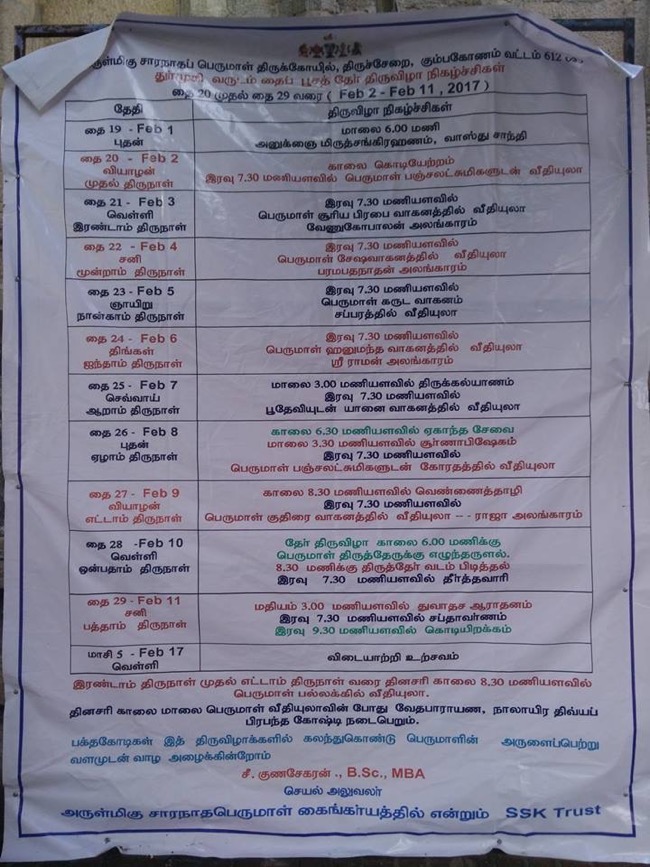 அருள்மிகு சாரநாதப் பெருமாள் திருக்கோயில், திருச்சேறை, கும்பகோணம் வட்டம் 612
துர்முகி வருடம் தைப் பூசத் தேர் திருவிழா நிகழ்ச்சிகள்
தை 20 முதல் தை 29 வரை ( Feb 2 - Feb 11 , 2017 )
தேதி திருவிழா நிகழ்ச்சிகள்
தை 19 - Feb 1
புதன்
மாலை 6.00 மணி
அனுக்ஞை மிருத்சங்கிரஹணம், வாஸ்து சாந்தி
தை 20 - Feb 2
வியாழன்
முதல் திருநாள்
காலை கொடியேற்றம்
இரவு 7.30 மணியளவில் பெருமாள் பஞ்சலட்சுமிகளுடன் வீதியுலா
தை 21 - Feb 3
வெள்ளி
இரண்டாம் திருநாள்
இரவு 7.30 மணியளவில்
பெருமாள் சூரிய பிரபை வாகனத்தில் வீதியுலா
வேணுகோபாலன் அலங்காரம்
தை 22 - Feb 4
சனி
மூன்றாம் திருநாள்
இரவு 7.30 மணியளவில்
பெருமாள் சேஷவாகனத்தில் வீதியுலா
பரமபதநாதன் அலங்காரம்
தை 23 - Feb 5
ஞாயிறு
நான்காம் திருநாள்
இரவு 7.30 மணியளவில்
பெருமாள் கருட வாகனம்
சப்பரத்தில் வீதியுலா
தை 24 - Feb 6
திங்கள்
ஐந்தாம் திருநாள்
இரவு 7.30 மணியளவில்
பெருமாள் ஹனுமந்த வாகனத்தில் வீதியுலா
ஸ்ரீ ராமன் அலங்காரம்
தை 25 - Feb 7
செவ்வாய்
ஆறாம் திருநாள்
மாலை 3.00 மணியளவில் திருக்கல்யாணம்
இரவு 7.30 மணியளவில்
பூதேவியுடன் யானை வாகனத்தில் வீதியுலா
தை 26 - Feb 8
புதன்
ஏழாம் திருநாள்
காலை 6.30 மணியளவில் ஏகாந்த சேவை
மாலை 3.30 மணியளவில் சூர்ணாபிஷேகம்
இரவு 7.30 மணியளவில்
பெருமாள் பஞ்சலட்சுமிகளுடன் கோரதத்தில் வீதியுலா
தை 27 - Feb 9
வியாழன்
எட்டாம் திருநாள்
காலை 8.30 மணியளவில் வெண்ணைத்தாழி
இரவு 7.30 மணியளவில்
பெருமாள் குதிரை வாகனத்தில் வீதியுலா -- - ராஜா அலங்காரம்
தை 28 -Feb 10
வெள்ளி
ஒன்பதாம் திருநாள்
தேர் திருவிழா காலை 6.00 மணிக்கு
பெருமாள் திருத்தேருக்கு எழுந்தருளல்.
8.30 மணிக்கு திருத்தேர் வடம் பிடித்தல்
இரவு 7.30 மணியளவில் தீர்த்தவாரி
தை 29 - Feb 11
சனி
பத்தாம் திருநாள்
மதியம் 3.00 மணியளவில் துவாதச ஆராதனம்
இரவு 7.30 மணியளவில் சப்தாவர்ணம்
இரவு 9.30 மணியளவில் கொடியிறக்கம்
மாசி 5 - Feb 17
வெள்ளி
விடையாற்றி உற்சவம்
இரண்டாம் திருநாள் முதல் எட்டாம் திருநாள் வரை தினசரி காலை 8.30 மணியளவில்
பெருமாள் பல்லக்கில் வீதியுலா.
தினசரி காலை மாலை பெருமாள் வீதியுலாவின் போது வேதபாராயண, நாலாயிர திவ்யப்
பிரபந்த கோஷ்டி நடைபெறும்.
பக்தகோடிகள் இத் திருவிழாக்களில் கலந்துகொண்டு பெருமாளின் அருளைப்பெற்று
வளமுடன் வாழ அழைக்கின்றோம்
சீ. குணசேகரன் ., B.Sc., MBA
செயல் அலுவலர்
அருள்மிகு சாரநாதபெருமாள் கைங்கர்யத்தில் என்றும் SSK Trust